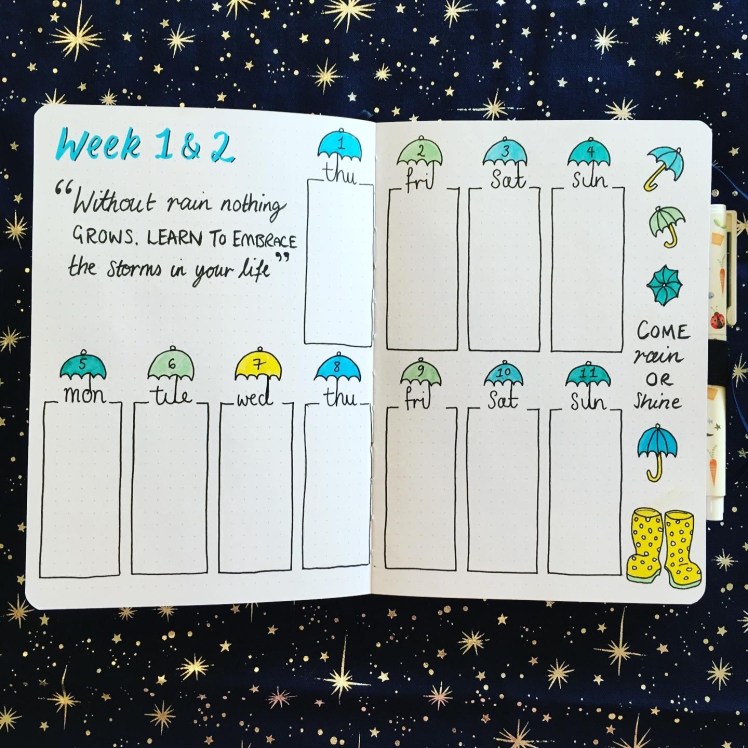 Week 1 & 2
"Without rain nothing
GROWS. LEARN TO EMBRACE
the storms in your life"
1
thu
2
fri
3
Sat
4
sun
5
mon
6
tue
7
wed
8
thu
9
fri
10
Sat
11
Sun
COME
rain
OR
Shine